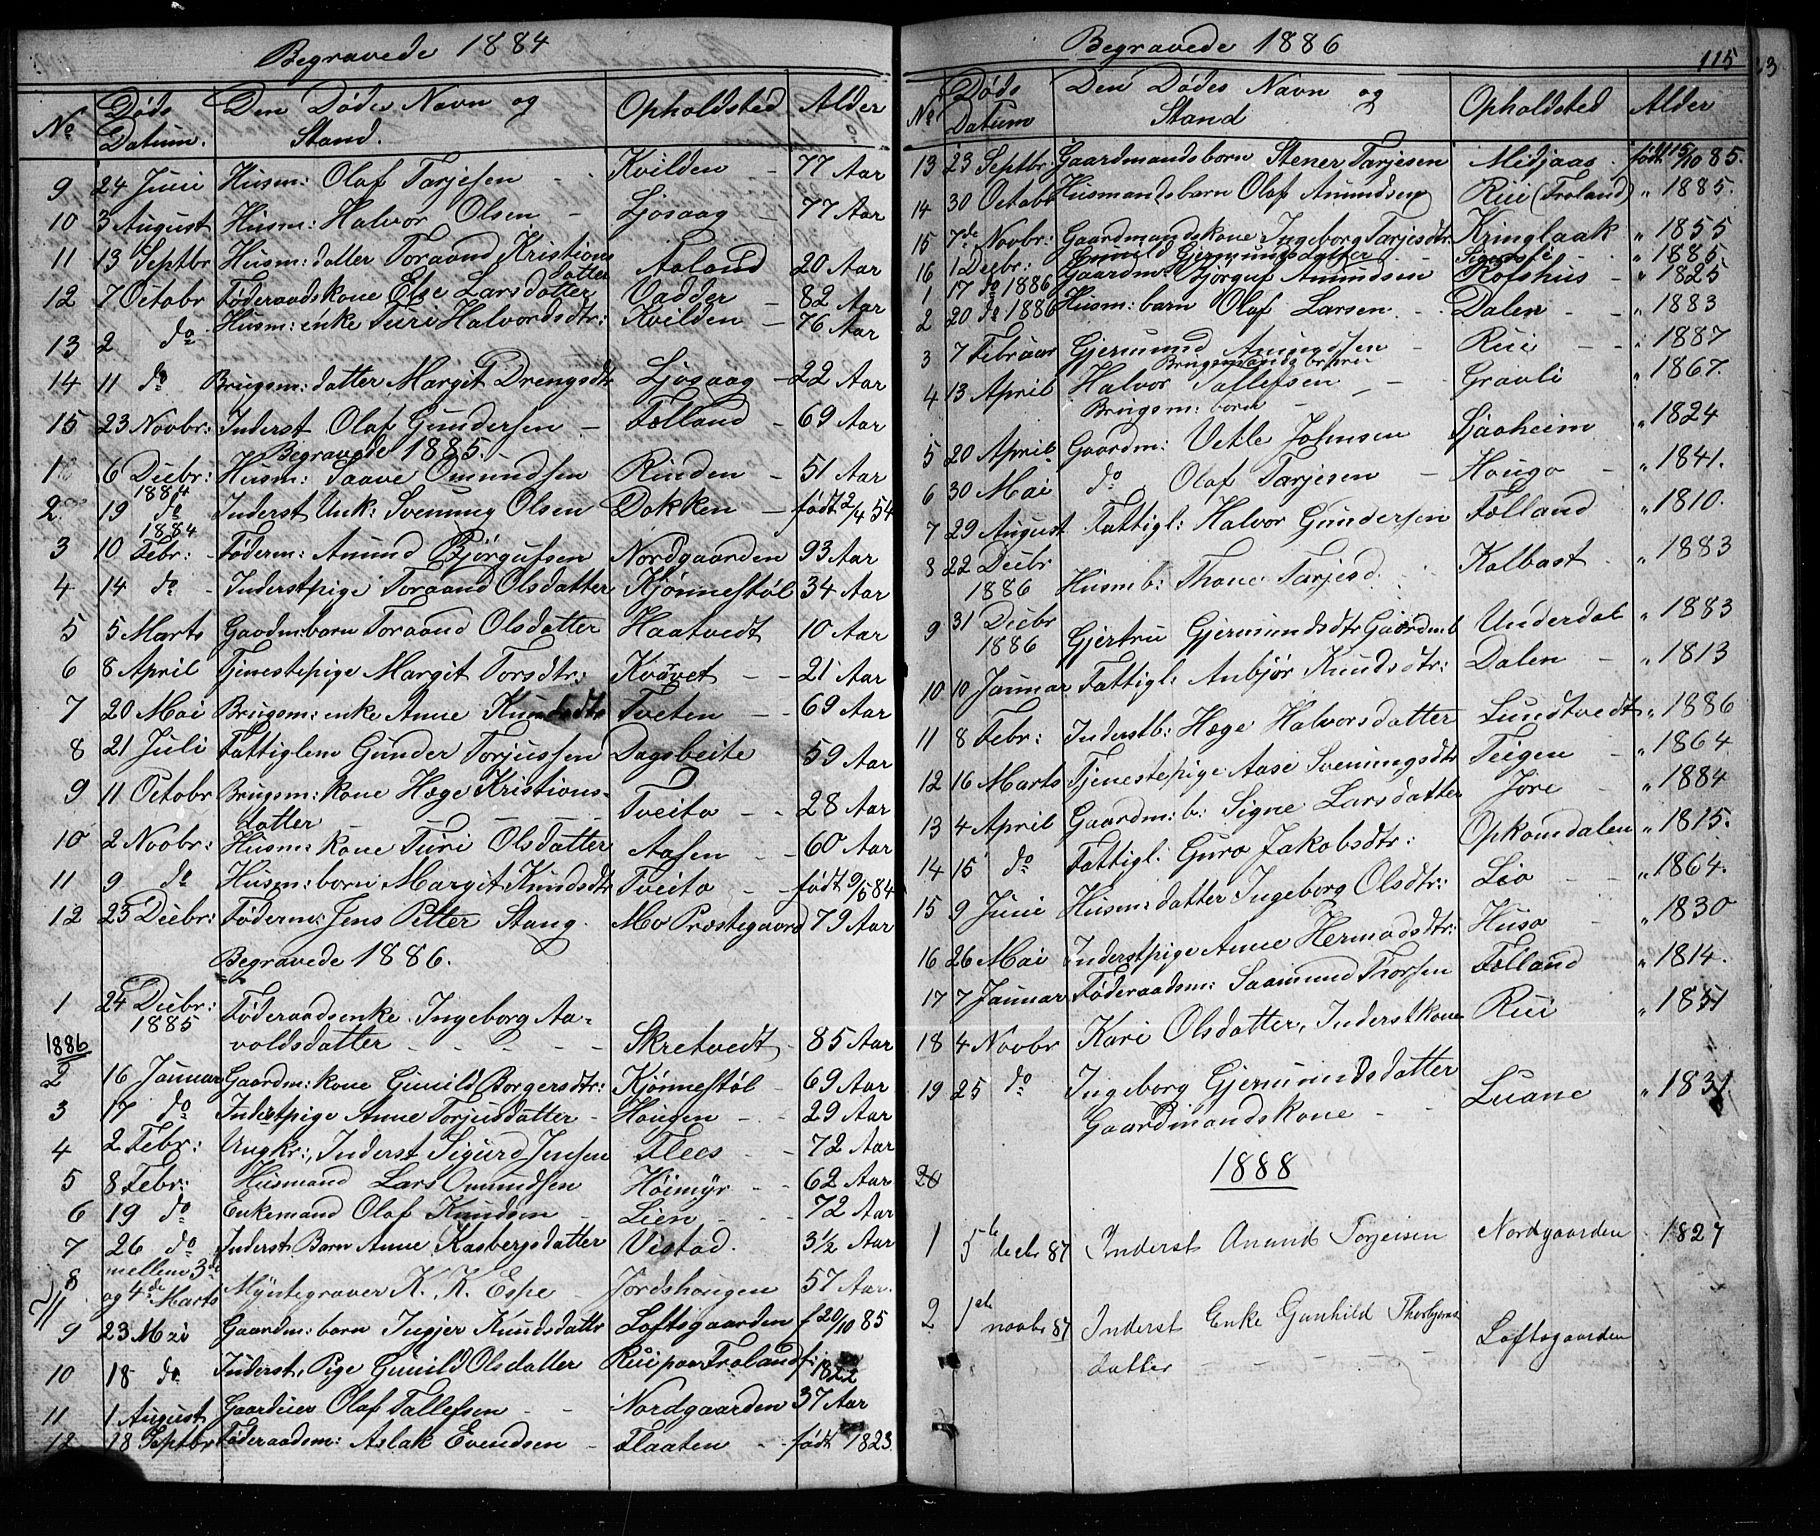 Begravede 1884
No Døds Datum. Den Dødes Navn og Stand. Opholdsted Alder
9 24 Juni Husm: Olaf Tarjesen - Kvilden - 77 Aar
10 3 August Husm: Halvor Olsen - Ljosaag - 77 Aar
11 13 Septbr Husm: datter Toraand Kristians datter Aaland 20 Aar
12 7 Octobr Føderaadskone Else Larsdatter Vadder - 82 Aar
13 2 do Husm: enke Turi Halvordsdtr: Kvilden - 76 Aar
14 11 do Brugsm: datter Margit Drengsdtr Ljosaag - 22 Aar
15 23 Novbr: Inderst Olaf Gundersen - Følland - 69 Aar
Begravede 1885.
1 6 Decbr: 1884 Husm: Saave Omundsen Rinden - 51 Aar
2. 19 do 1884 Inderst Unk: Svenung Olsen Dokken - født 2/4 54
3 10 Febr: - Føderm: Amund Bjørgufsen Nordgaarden 93 Aar
4 14 do - Inderstpige Toraand Olsdatter Kjønnestøl 34 Aar
5 5 Marts Gaardm:barn Toraand Olsdatter Haatvedt 10 Aar
6 8 April Tjenestepige Margit Torsdtr: Kvovet - - 21 Aar
7 20 Mai Brugsm: enke Anne Knudsdtr Tveten - - 69 Aar
8 21 Juli Fattiglem Gunder Torjussen Dagsbeite 59 Aar
9 11 Octobr Brugsm: kone Hæge Kristians- datter - - - Tveito - - 28 Aar
10 2 Novbr: Husm: kone Turi Olsdatter Aasen - - 60 Aar
11 9 do Husm: barn Margit Knudsdtr Tveito - født 9/5 84
12 25 Decbr: Føderm: Jens Petter Stang. Mo Præstegaard 79 Aar
Begravede 1886.
1 24 Decbr: 1885 Føderaadsenke Ingeborg Aa- voldsdatter - - - - Skretvedt - 85 Aar
1886
2 16 Januar Gaardm: kone Gunild Borgersdtr: Kjønnestøl - 69 Aar
3 17 do Inderstpige Anne Torjusdatter - Haugen - - 29 Aar
4 2 Febr: Ungkr:, Inderst Sigurd Jensen Flees - - 72 Aar
5 8 Febr: Husmand Lars Omundsen Høimyr - - 62 Aar
6 19 do Enkemand Olaf Knudsen - Lien - - 72 Aar
7 26 do Inderst Barn Anne Kasbergsdatter Vistad. 3 1/2 Aar
8 mellem 3de og 4de Marts Myntegraver K. K. Espe - Jordshaugen - 57 Aar.
9 23 Mai Gaardm: barn Ingjer Knudsdatter Loftsgaarden f 20/10 85
10 18 do Inderst, Pige Gunild Olsdatter Rui paa Froland f: 1822
11 1 August Gaardeier Olaf Tallefsen - - Nordgaarden 37 Aar
12 18 Septbr Føderaadsm: Aslak Evendsen - Flaaten - født 1823.
Begravede 1886
115
No Døds Datum Den Dødes Navn og Stand Opholdsted Alder
13 23 Septbr: Gaardmandsbarn Stener Tarjesen Midjaas. født 15/10 85.
14 30 Octobr Husmandsbarn Olaf Amundsen Rui (Froland) " 1885.
15 7de Novbr: Gaardmandskone Ingeborg Tarjesdtr. Kringlaak " 1855
16 1 Decbr: Gunild Gjermundsdatter - - " 1885.
1 17 do 1886 Gaardm: Bjørguf Amundsen Rofshus - " 1825
2 20 do 1886 Husm: barn Olaf Larsen - - Dalen - - " 1883
3 7 Februar Gjermund Amundsen Rui - - " 1887
4 13 April Halvor Tallefsen - - Gravli - " 1867.
Brugsm: barn -
5 20 April Gaardm: Vetle Johnsen Ljaaheim " 1824
6 30 Mai do Olaf Tarjesen - Haugo - " 1841.
7 29 August Fattigl: Halvor Gundersen Følland " 1810.
8 22 Decbr 1886 Husm b: Thone Tarjesd. Kalbast - " 1883
9 31 Decbr 1886 Gjertru Gjermundsdtr Gaardm b Underdal " 1883
10 10 Januar Fattigl: Anbjør Knudsdtr: Dalen - " 1813
11 8 Febr: Inderstb: Hæge Halvorsdatter Lundtvedt " 1886
12 16 Marts Tjenestepige Aase Sveningsdtr Teigen - " 1864
13 4 April Gaardm: b: Signe Larsdatter Jore - " 1884
14 15 do Fattigl: Guro Jakobsdtr: Opkomdalen " 1815.
15 9 Juni Husm: datter Ingeborg Olsdtr: Lio - " 1864.
16 26 Mai Inderstpige Anne Hermodsdtr: Huso " 1830
17 7 Januar Føderaadsm: Saamund Thorsen Følland " 1814.
18 4 Novbr Kari Olsdatter, Inderstkone Rui " 1851
19 25 do Ingeborg Gjermundsdatter Gaardmandskone - - Luane " 1831
20
1888
1 5te decbr 87 Inderst Anund Torjeisen Nordgaarden 1827
2 1ste novbr 87 Inderst Enke Gunhild Thorbjørns datter - - - - - Loftsgaarden